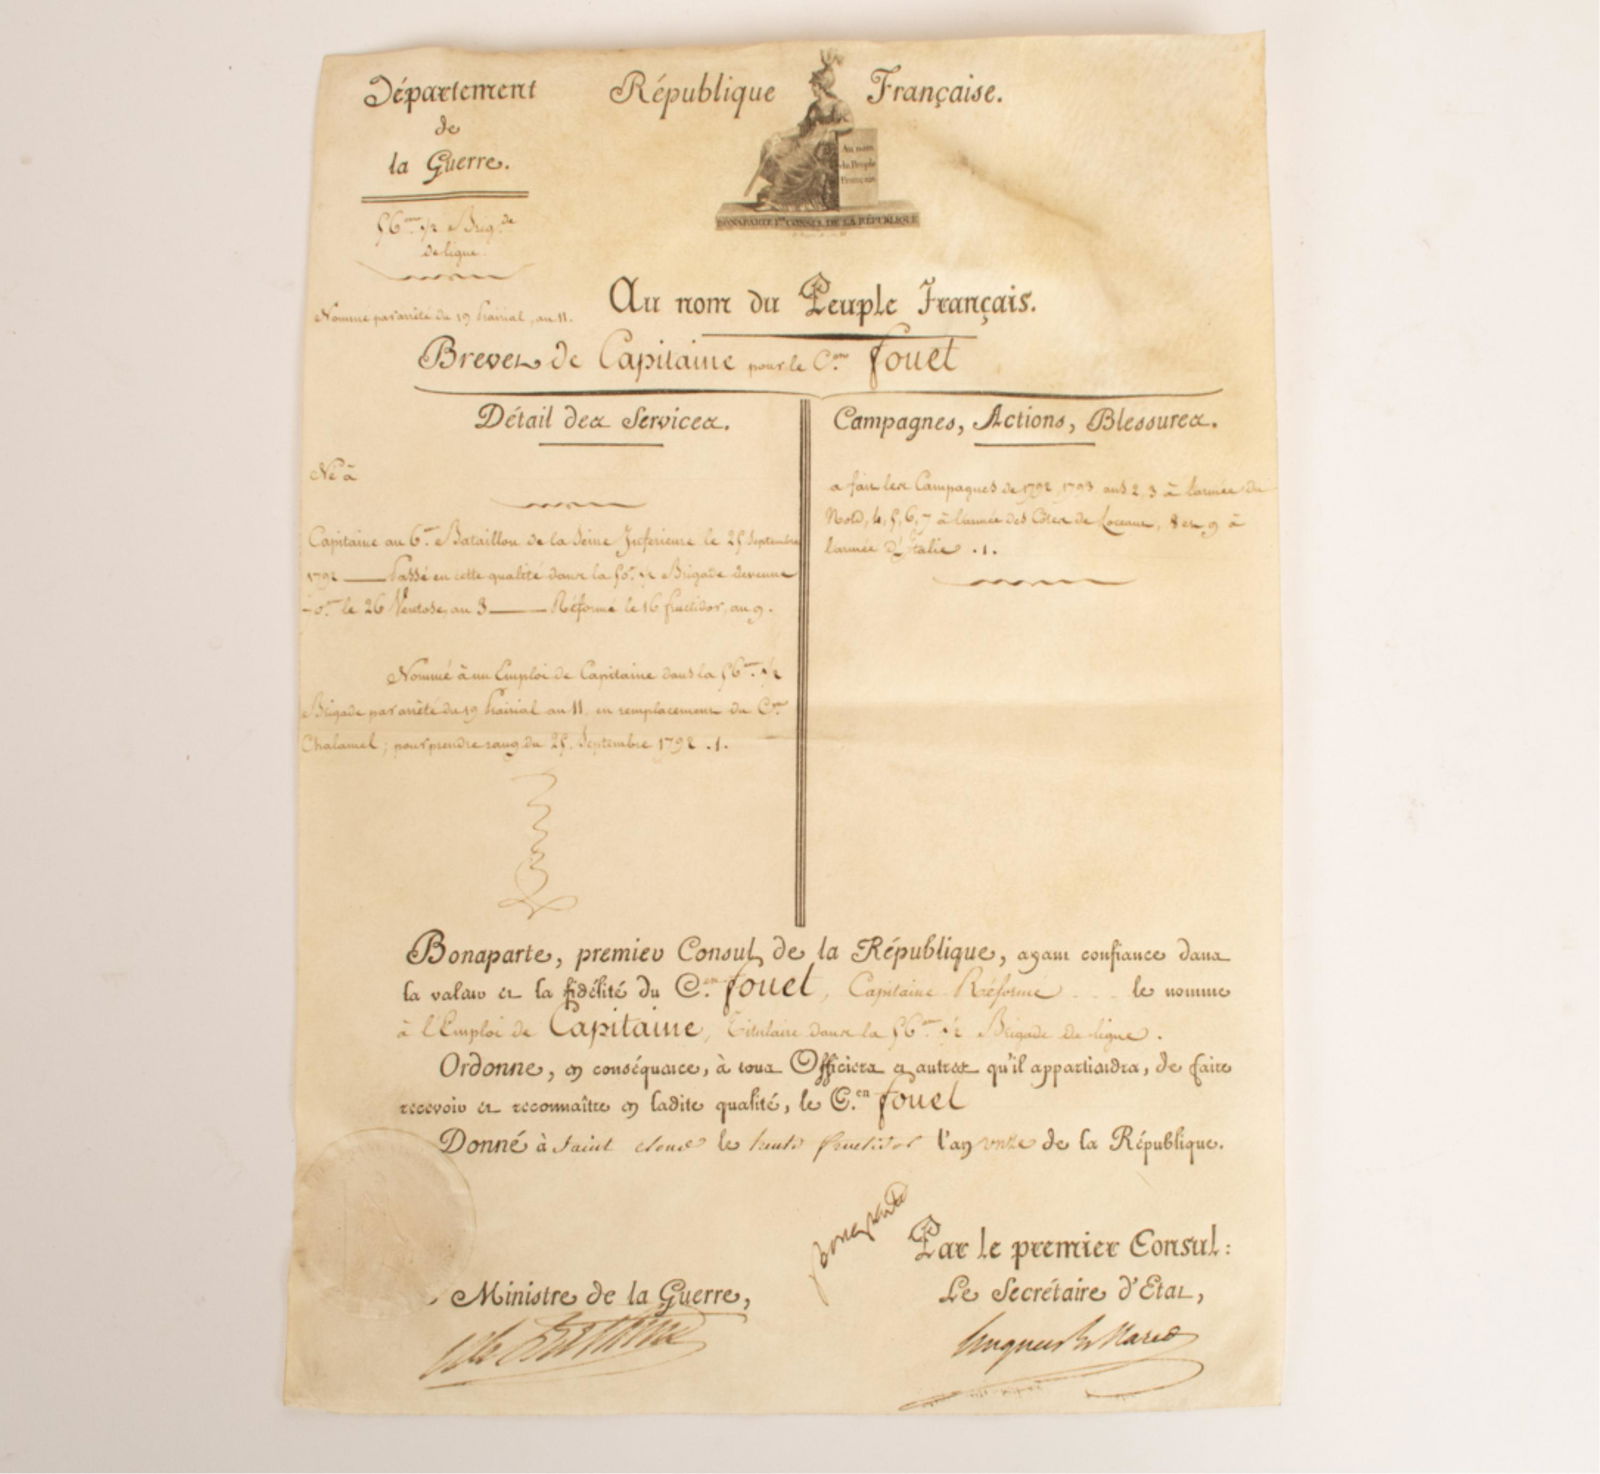 Département
de
la Guerre.
République Française.
Au nom
du Peuple
Français
BONAPARTE 1er CONSUL DE LA RÉPUBLIQUE
56.me 1/2 Brig.de
de ligne
Nommé par arrêté du 19 Prairial, an 11.
Au nom du Peuple Français.
Brevet de Capitaine pour le C.en Fouet
Détail des Services.
Campagnes, Actions, Blessures.
Né à
a fait les Campagnes de 1792, 1793, ans 2, 3 à l'armée du
Nord, 4, 5, 6, 7 à l'armée des Côtes de l'océan, 8 et 9 à
l'armée d'Italie . 1 .
Capitaine au 6.e Bataillon de la Seine Inférieure le 25 Septembre
1792 Passé en cette qualité dans la 1/2 Brigade devenue
le 26 Ventose, an 3 Réformé le 16 fructidor, an 9.
Nommé à un Emploi de Capitaine dans la 56.me 1/2
Brigade par arrêté du 19 Prairial an 11, en remplacement du C.en
Chalamel ; pour prendre rang du 25 Septembre 1792 . 1 .
Bonaparte, premier Consul de la République, ayant confiance dans
la valeur et la fidélité du C.en Fouet, Capitaine Réformé le nomme
à l'Emploi de Capitaine, Titulaire dans la 56.me 1/2 Brigade de ligne .
Ordonne, en conséquence, à tous Officiers et autres qu'il appartiendra, de faire
recevoir et reconnaître en ladite qualité, le C.en Fouet
Donné à Saint cloud le fructidor l'an onze de la République.
Bonaparte
Par le premier Consul :
Ministre de la Guerre,
Le Secrétaire d'Etat,
Hugues B. Maret